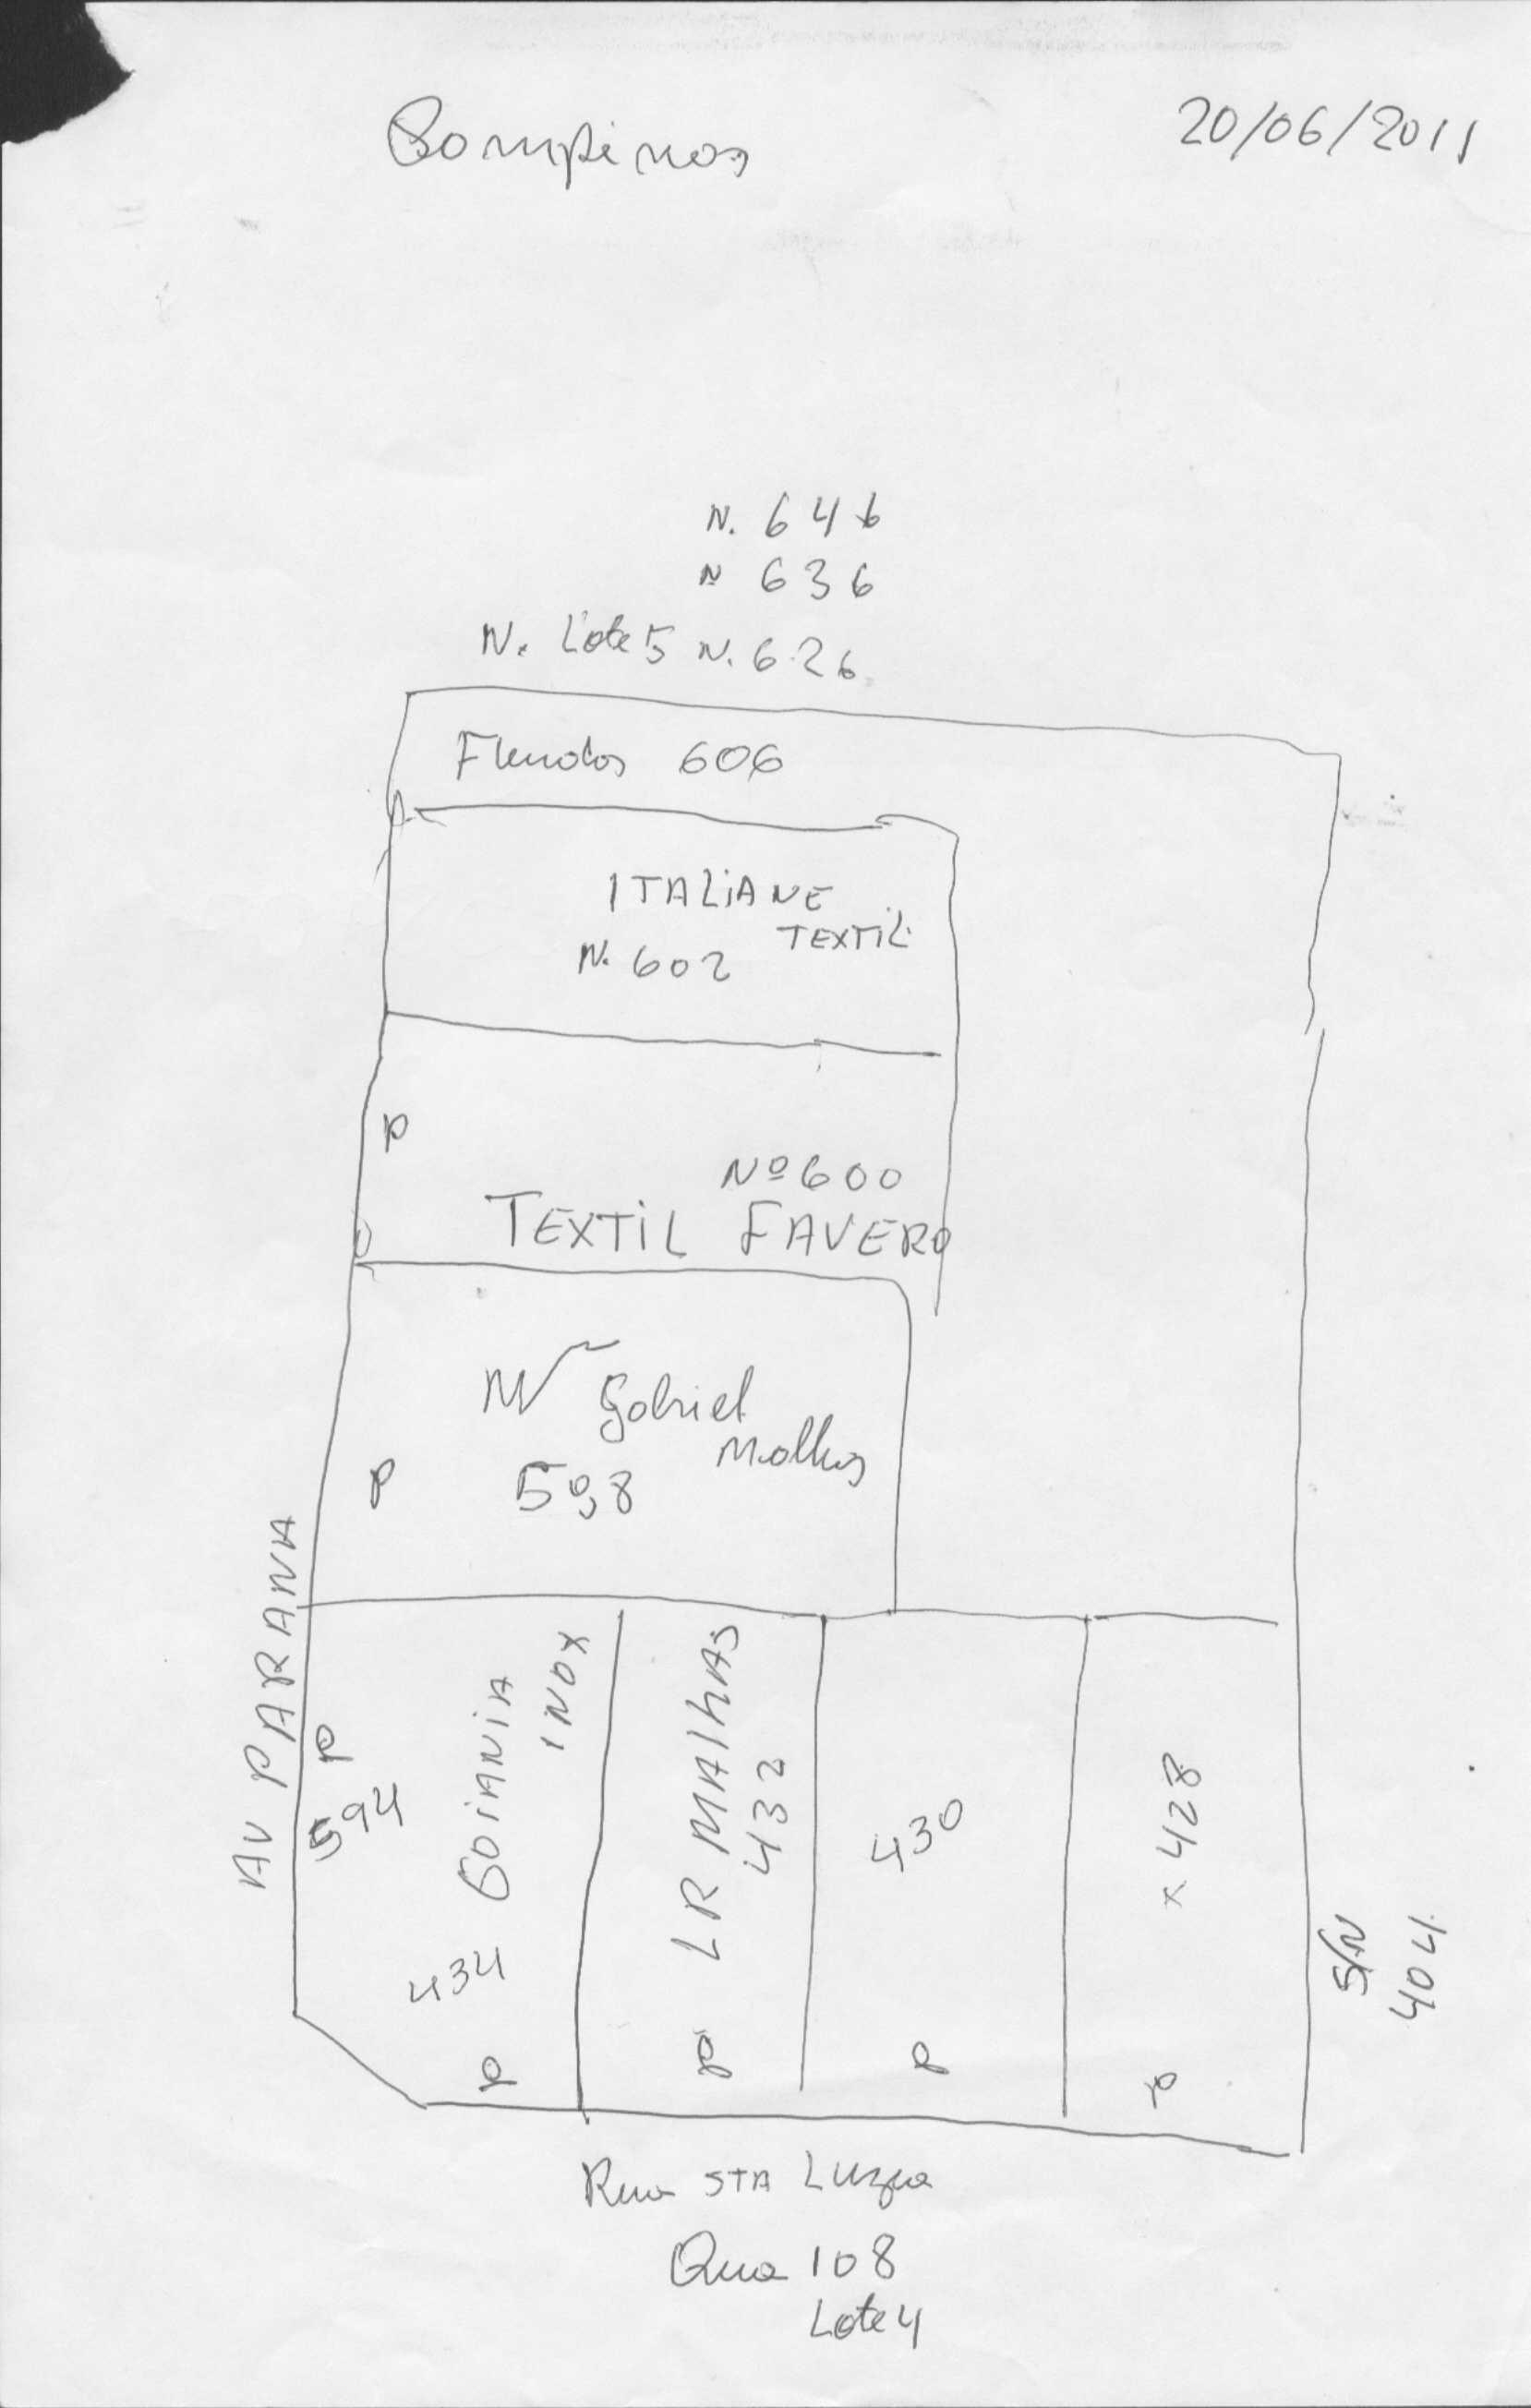 Campinas
20/06/2011
N. 646
N 636
N. Lote 5 N. 626
606
ITALIANE
TEXTIL
N. 602
P
Nº 600
TEXTIL FAVERO
Gabriel
Malhas
598
P
AV PARANA
P
594
GOIANIA
INOX
434
P
LR MALhAS
432
P
430
P
x 428
P
S/N
404
Rua STA Luzia
Qua 108
Lote 4